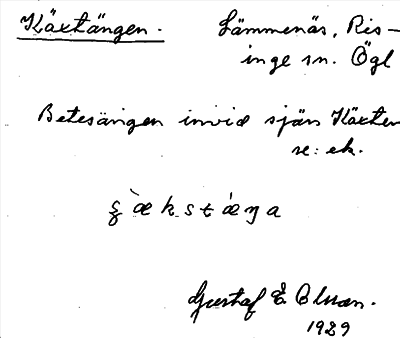 Käxtängen. Lämmenäs, Ris-
inge sn. Ögl
Betesängen invid sjön Käxten
se: ek.
Gustaf E. Olsson.
1929